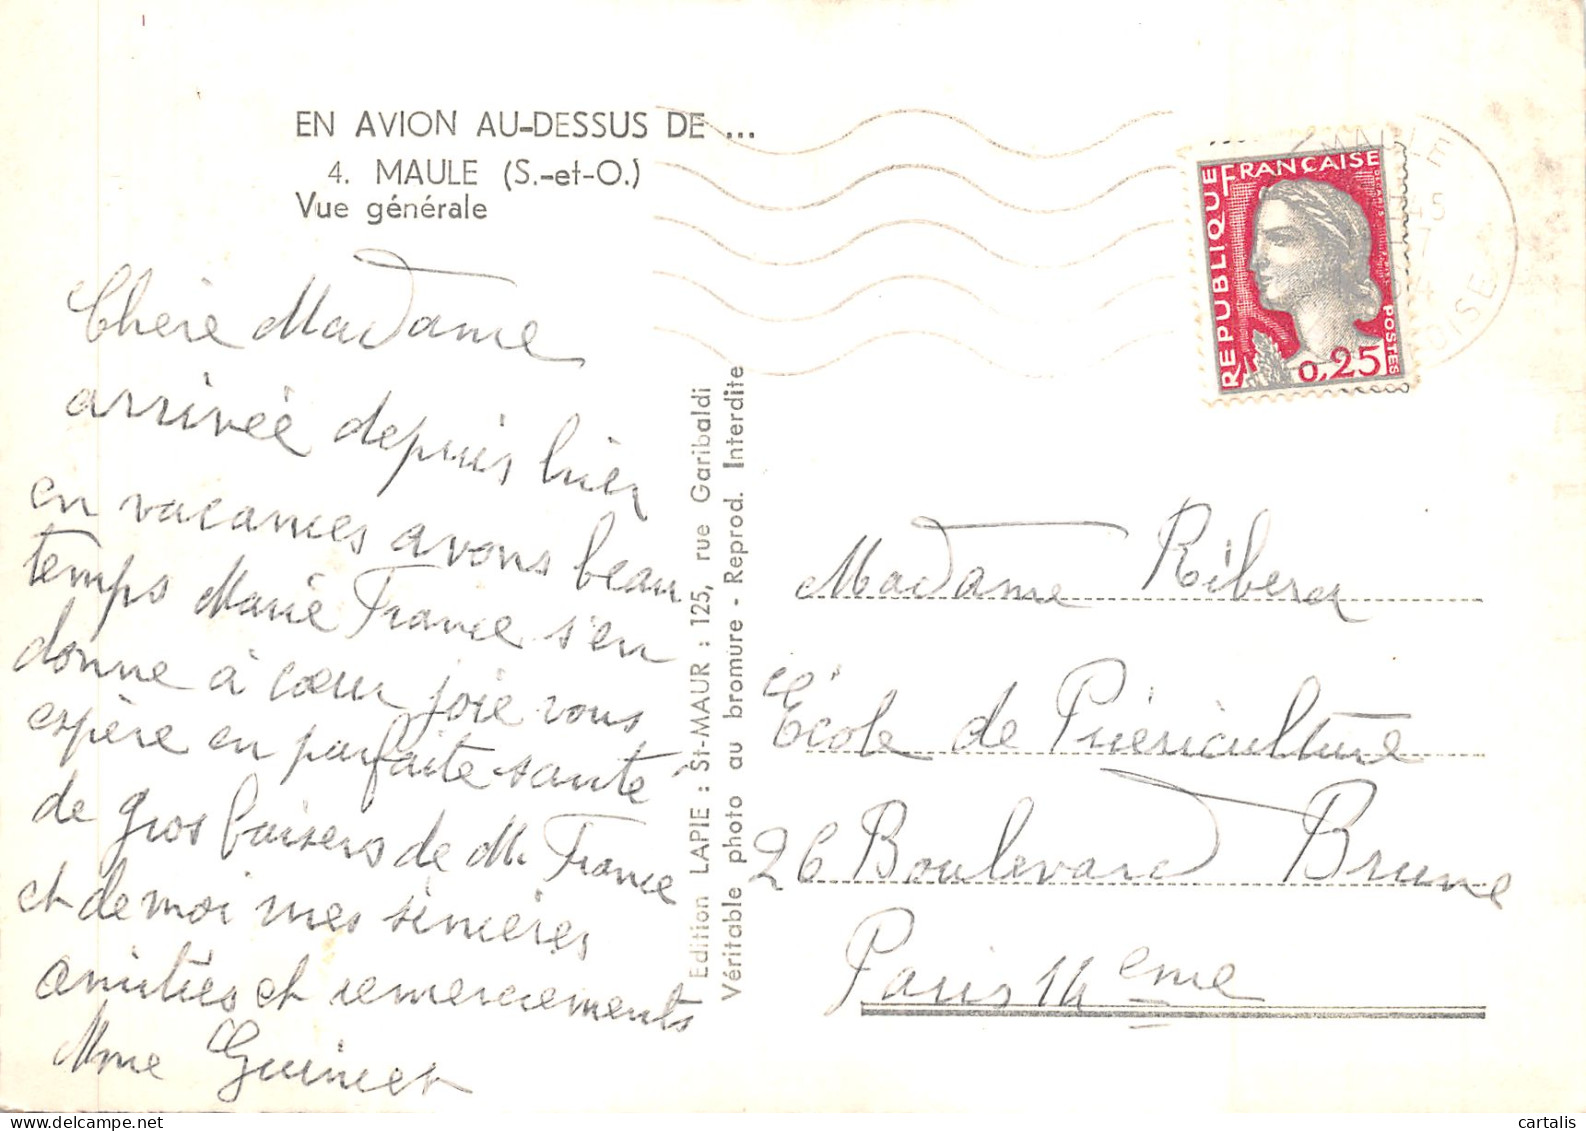 EN AVION AU-DESSUS DE ...
4. MAULE (S.-et-O.)
Vue générale
Chère Madame
arrivée depuis hier
en vacances avons beau
temps Marie France s'en
donne à cœur joie vous
espère en parfaite santé
de gros baisers de M. France
et de moi mes sincères
amitiés et remerciements
Mme Guinet
Edition LAPIE : St-MAUR : 125, rue Garibaldi
Véritable photo au bromure - Reprod. Interdite
MAULE
45
7
4
OISE
REPUBLIQUE
FRANÇAISE
POSTES
0,25
Madame Ribera
École de Puériculture
26 Boulevard Brune
Paris 14 eme
cartalis